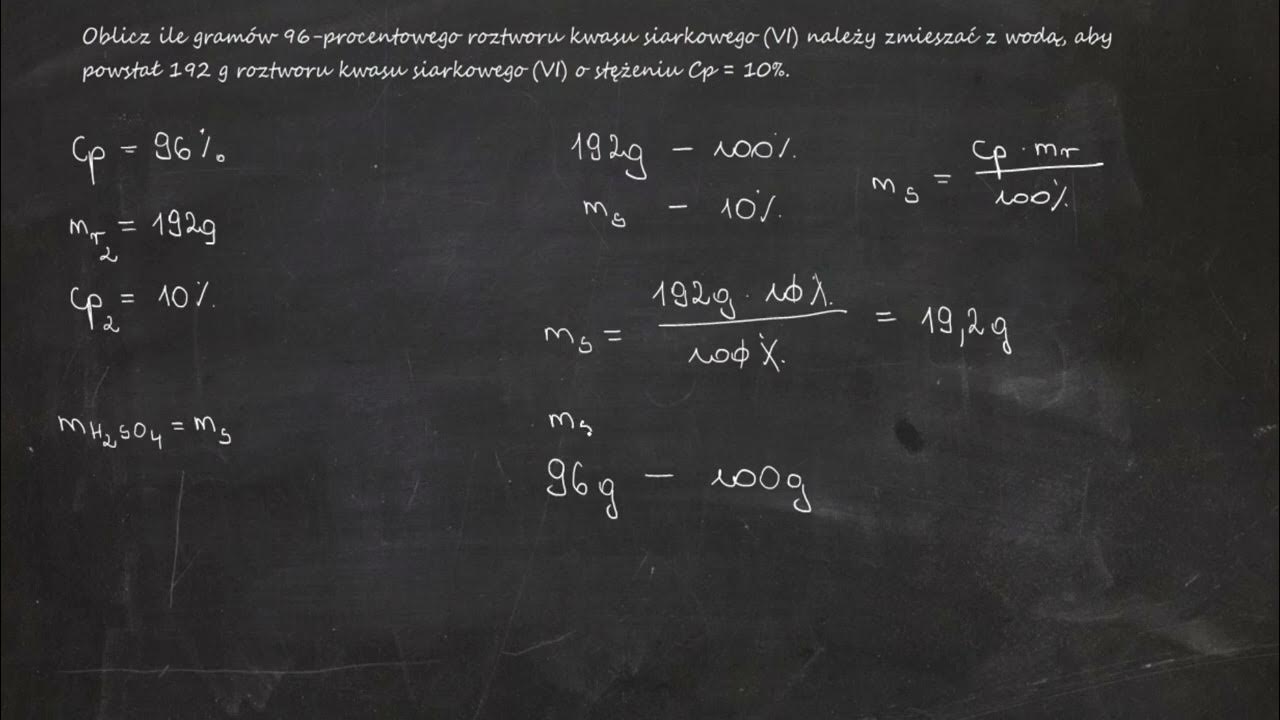 Oblicz ile gramów 96-procentowego roztworu kwasu siarkowego (VI) należy zmieszać z wodą, aby
powstał 192 g roztworu kwasu siarkowego (VI) o stężeniu Cp = 10%.
Cp = 96%
mr₂ = 192g
Cp₂ = 10%
mH₂SO₄ = ms
192g – 100%
ms – 10%
ms = (Cp · mr)/100%
ms = (192g · 10%)/100% = 19,2g
ms
96g – 100g